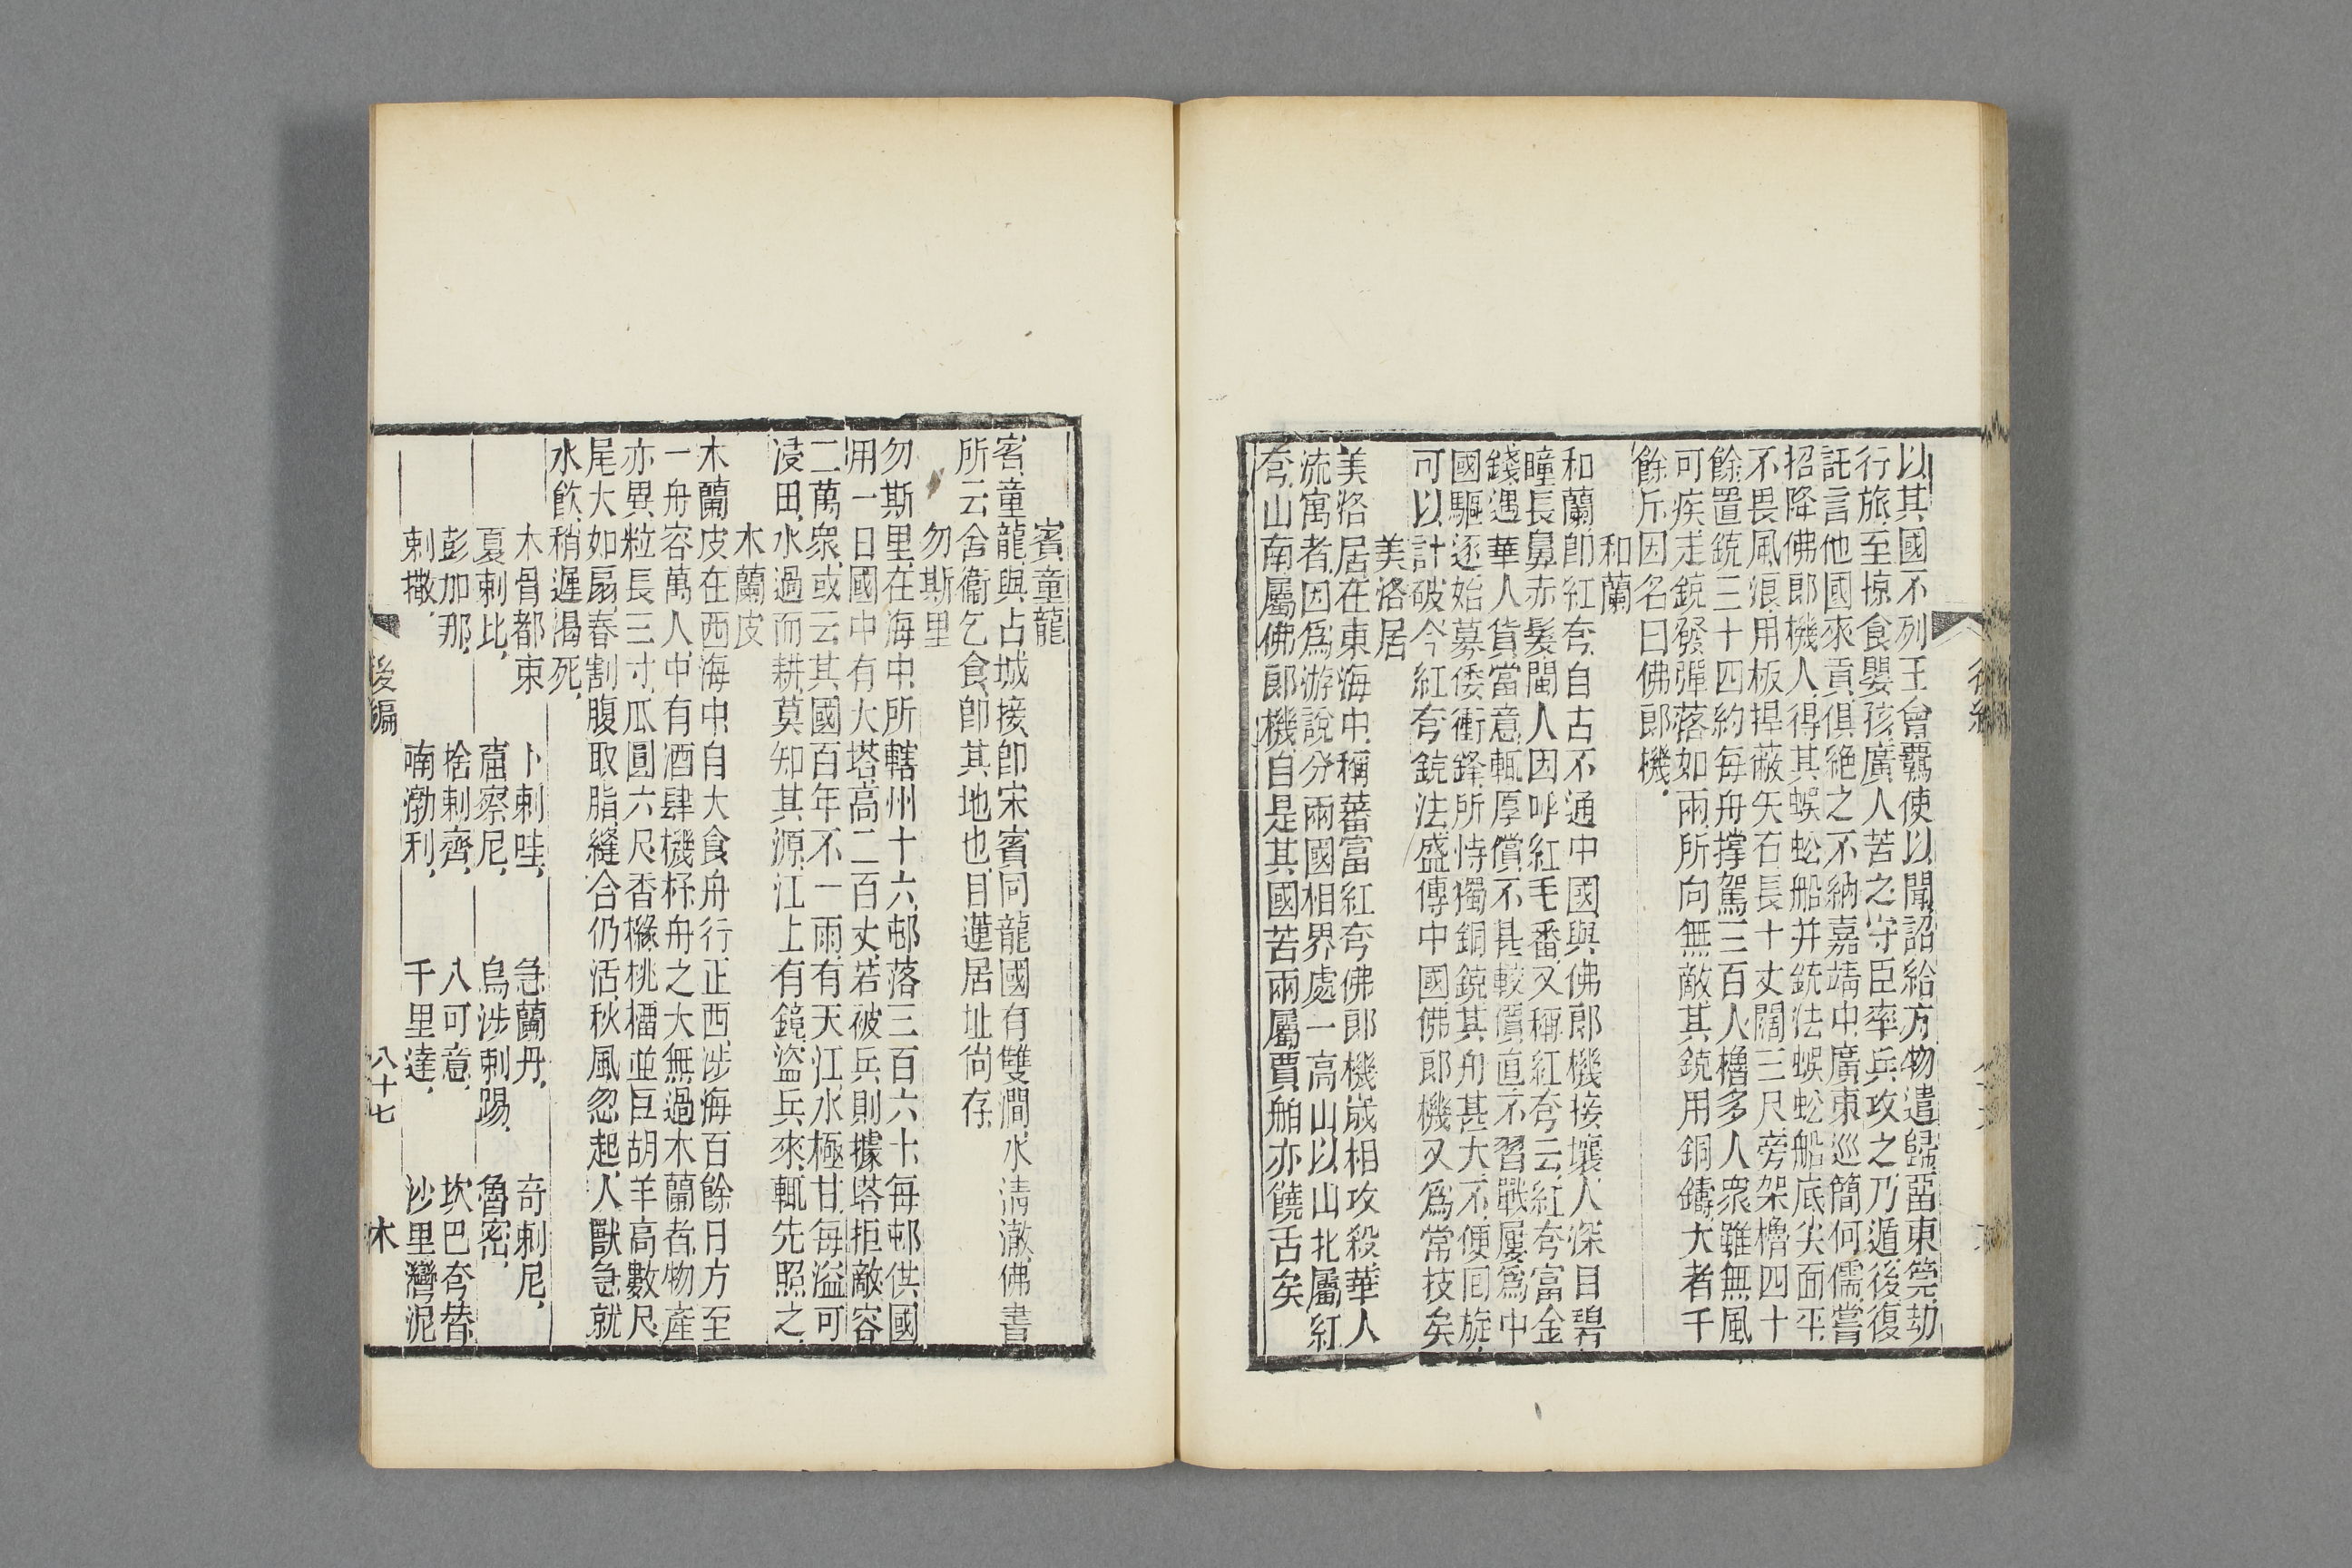 以其國不列王會羈使以聞詔給方物遣歸畱東筦劫
行旅至掠食嬰孩廣人苦之守臣率兵攻之乃遁後復
託言他國來貢俱絶之不納嘉靖中廣東巡簡何儒嘗
招降佛郎機人得其蜈蚣船并銃法蜈蚣船底尖面平
不畏風浪用板捍蔽矢石長十丈闊三尺旁架櫓四十
餘置銃三十四約每舟撑駕三百人櫓多人衆雖無風
可疾走銃發彈落如雨所向無敵其銃用銅鑄大者千
餘斤因名曰佛郎機
和蘭
和蘭卽紅夸自古不通中國與佛郎機接壤人深目碧
瞳長鼻赤髮閩人因呼紅毛番又稱紅夸云紅夸富金
錢遇華人貨當意輒厚償不甚較價直不習戰屢爲中
國驅逐始募倭衝鋒所恃獨銅銃其舟甚大不便囘旋
可以計破今紅夸銃法盛傳中國佛郎機又爲常技矣
美洛居
美洛居在東海中稱蕃富紅夸佛郎機歲相攻殺華人
流寓者因爲游說分兩國相界處一高山以山北屬紅
夸山南屬佛郎機自是其國苦兩屬賈舶亦饒舌矣
賓童龍
賓童龍與占城接卽宋賓同龍國有雙澗水淸澈佛書
所云舍衞乞食卽其地也目蓮居址尙存
勿斯里
勿斯里在海中所轄州十六邨落三百六十每邨供國
用一日國中有大塔高二百丈若被兵則據塔拒敵容
二萬衆或云其國百年不一雨有天江水極甘每溢可
浸田水過而耕莫知其源江上有鏡盜兵來輒先照之
木蘭皮
木蘭皮在西海中自大食舟行正西涉海百餘日方至
一舟容萬人中有酒肆機杼舟之大無過木蘭者物產
亦異粒長三寸瓜圓六尺香櫞桃橊並巨胡羊高數尺
尾大如扇春割腹取脂縫合仍活秋風忽起人獸急就
水飮稍遲渴死
木骨都束 卜剌哇 急蘭丹 奇剌尼
夏剌比 窟察尼 烏涉剌踢 魯密
彭加那 捨剌齊 八可意 坎巴夸替
剌撒 喃渤利 千里達 沙里灣泥
後編 八十七 木